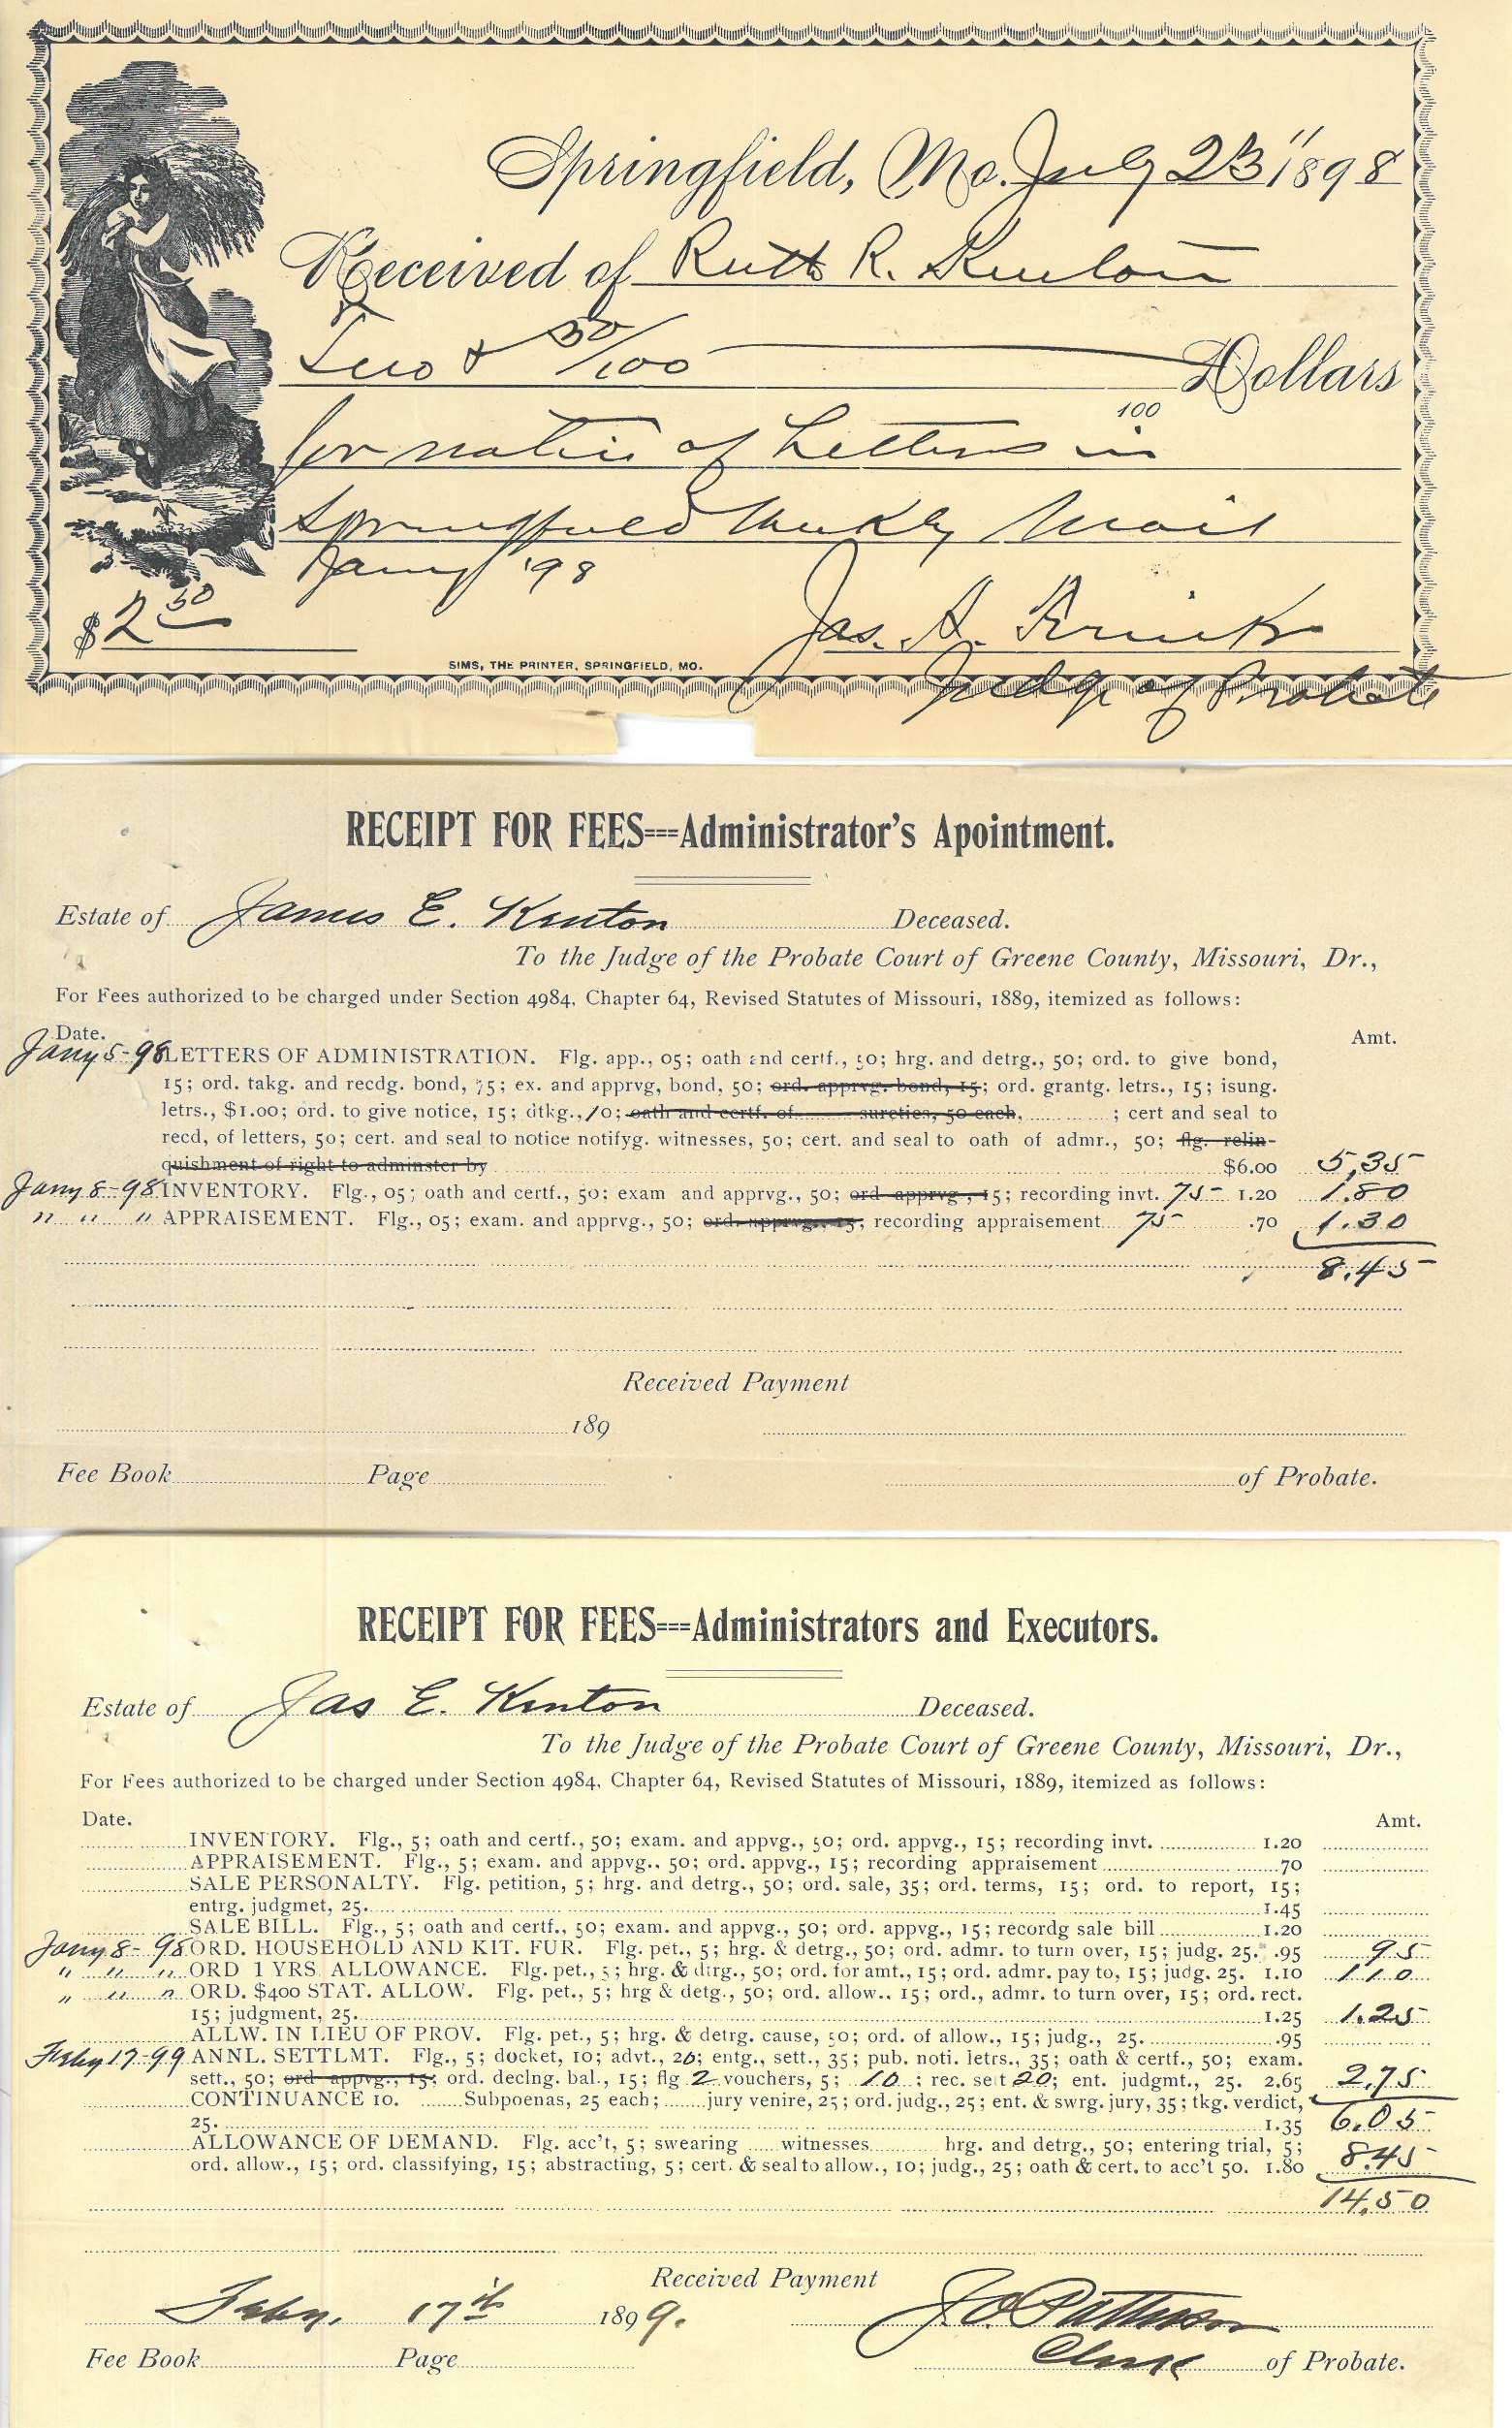 Springfield, Mo. July 23" 1898
Received of Ruth R. Kenton
Two & 50/100 Dollars
100
for notice of Letters in
Springfield Weekly Mail
Jany '98
$2 50
Jas. H.
SIMS, THE PRINTER, SPRINGFIELD, MO.
Judge of Probate
RECEIPT FOR FEES===Administrator's Apointment.
Estate of James E. Kenton Deceased.
To the Judge of the Probate Court of Greene County, Missouri, Dr.,
For Fees authorized to be charged under Section 4984, Chapter 64, Revised Statutes of Missouri, 1889, itemized as follows:
Date. Amt.
Jany 5-98 LETTERS OF ADMINISTRATION. Flg. app., 05; oath and certf., 50; hrg. and detrg., 50; ord. to give bond,
15; ord. takg. and recdg. bond, 75; ex. and apprvg, bond, 50; ord. apprvg. bond, 15; ord. grantg. letrs., 15; isung.
letrs., $1.00; ord. to give notice, 15; dtkg., 10; oath and certf. of sureties, 50 each, ; cert and seal to
recd, of letters, 50; cert. and seal to notice notifyg. witnesses, 50; cert. and seal to oath of admr., 50; flg. relin-
quishment of right to adminster by $6.00 5,35
Jany 8-98 INVENTORY. Flg., 05; oath and certf., 50; exam and apprvg., 50; ord apprvg, 15; recording invt. 75 1.20 1.80
" " " APPRAISEMENT. Flg., 05; exam. and apprvg., 50; ord. apprvg., 15; recording appraisement 75 .70 1.30
8.45
Received Payment
189
Fee Book Page of Probate.
RECEIPT FOR FEES===Administrators and Executors.
Estate of Jas E. Kenton Deceased.
To the Judge of the Probate Court of Greene County, Missouri, Dr.,
For Fees authorized to be charged under Section 4984, Chapter 64, Revised Statutes of Missouri, 1889, itemized as follows:
Date. Amt.
INVENTORY. Flg., 5; oath and certf., 50; exam. and appvg., 50; ord. appvg., 15; recording invt. 1.20
APPRAISEMENT. Flg., 5; exam. and appvg., 50; ord. appvg., 15; recording appraisement 70
SALE PERSONALTY. Flg. petition, 5; hrg. and detrg., 50; ord. sale, 35; ord. terms, 15; ord. to report, 15;
entrg. judgmet, 25. 1.45
SALE BILL. Flg., 5; oath and certf., 50; exam. and appvg., 50; ord. appvg., 15; recordg sale bill 1.20
Jany 8-98 ORD. HOUSEHOLD AND KIT. FUR. Flg. pet., 5; hrg. & detrg., 50; ord. admr. to turn over, 15; judg. 25. .95 95
" " " ORD 1 YRS. ALLOWANCE. Flg. pet., 5; hrg. & dtrg., 50; ord. for amt., 15; ord. admr. pay to, 15; judg. 25. 1.10 1.10
" " " ORD. $400 STAT. ALLOW. Flg. pet., 5; hrg & detg., 50; ord. allow.. 15; ord., admr. to turn over, 15; ord. rect.
15; judgment, 25. 1.25 1.25
ALLW. IN LIEU OF PROV. Flg. pet., 5; hrg. & detrg. cause, 50; ord. of allow., 15; judg., 25. .95
Feby 17-99 ANNL. SETTLMT. Flg., 5; docket, 10; advt., 20; entg., sett., 35; pub. noti. letrs., 35; oath & certf., 50; exam.
sett., 50; ord appvg., 15; ord. declng. bal., 15; flg 2 vouchers, 5; 10; rec. sett 20; ent. judgmt., 25. 2.65 2,75
CONTINUANCE 10. Subpoenas, 25 each; jury venire, 25; ord. judg., 25; ent. & swrg. jury, 35; tkg. verdict,
25. 1.35 6.05
ALLOWANCE OF DEMAND. Flg. acc't, 5; swearing witnesses hrg. and detrg., 50; entering trial, 5;
ord. allow., 15; ord. classifying, 15; abstracting, 5; cert. & seal to allow., 10; judg., 25; oath & cert. to acc't 50. 1.80 8.45
14,50
Received Payment
Feby. 17th 1899. J.O. Patterson
Clerk of Probate.
Fee Book Page